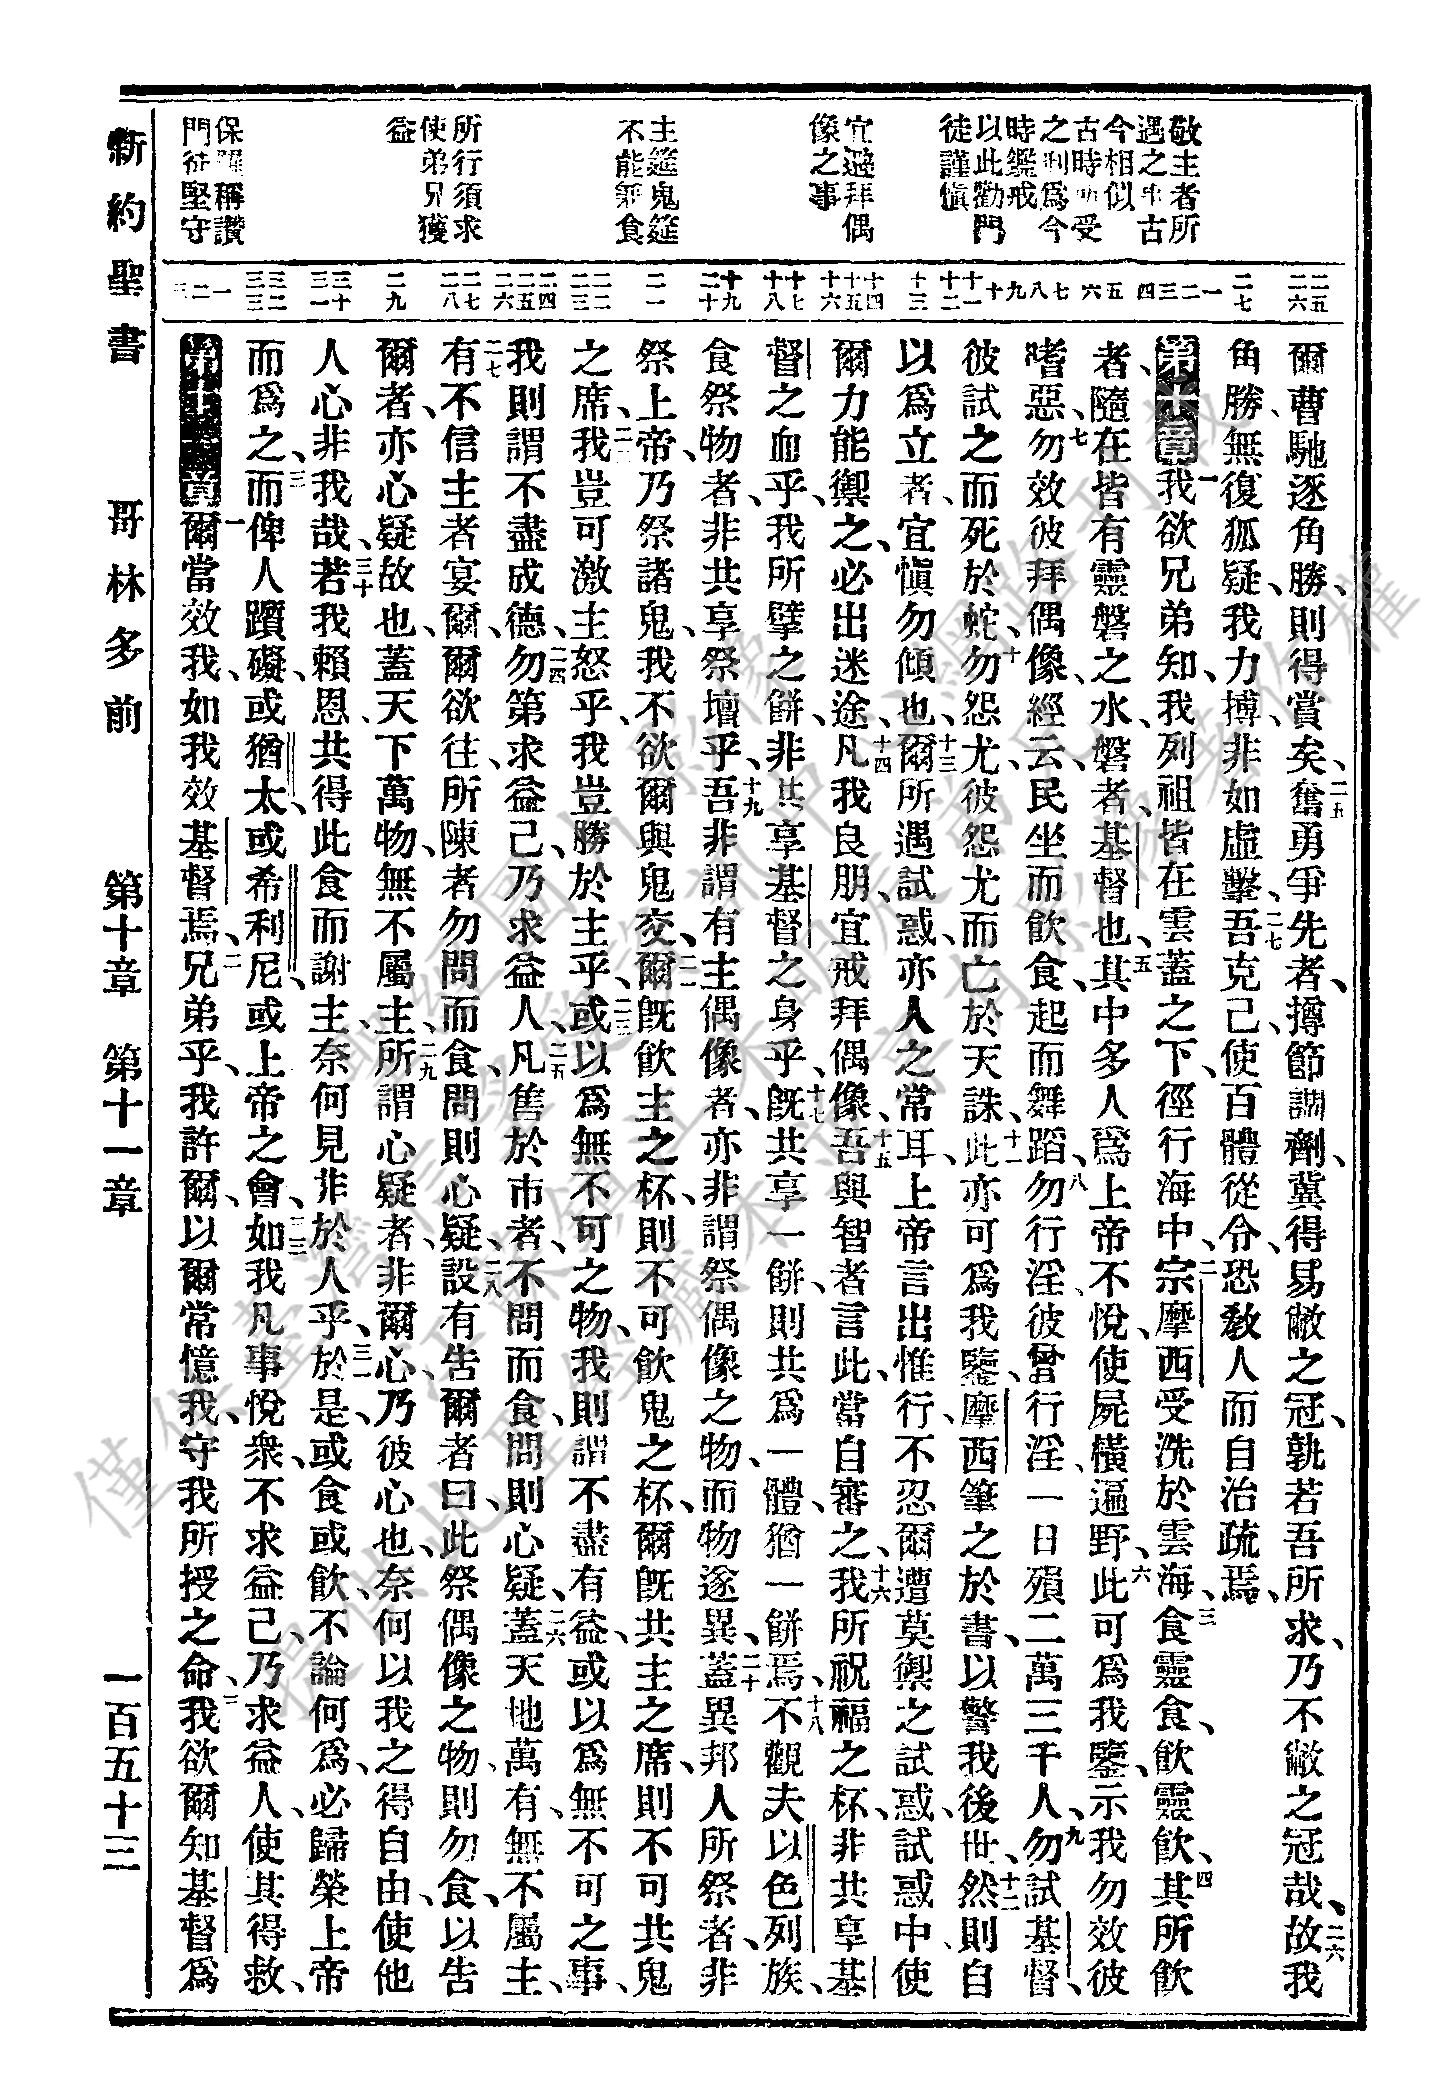 敬主者所
遇之事古
今相似
古時所受
之刑爲今
時鑑戒
以此勸門
徒謹愼
宜避拜偶
像之事
主筵鬼筵
不能兼食
所行須求
使弟兄獲
益
保羅稱讚
門徒堅守
二五 二六 二七 一 二 三 四 五 六 七 八 九 十 十一 十二 十三 十四 十五 十六 十七 十八 十九 二十 二一 二二 二三 二四 二五 二六 二七 二八 二九 三十 三一 三二 三三 一 二 三
爾曹馳逐角勝、則得賞矣、二五奮勇爭先者、撙節調劑、冀得易敝之冠、孰若吾所求、乃不敝之冠哉、二六故我
角勝、無復狐疑、我力搏、非如虛鑿、二七吾克己、使百體從令、恐敎人而自治疏焉、
第十章一我欲兄弟知、我列祖皆在雲蓋之下、徑行海中、二宗摩西受洗於雲海、三食靈食、飮靈飮、四其所飮
者、隨在皆有靈磐之水、磐者、基督也、五其中多人爲上帝不悅、使屍橫遍野、六此可爲我鑒、示我勿效彼
嗜惡、七勿效彼拜偶像、經云、民坐而飮食、起而舞蹈、八勿行淫、彼曾行淫、一日殞二萬三千人、九勿試基督、
彼試之而死於蛇、十勿怨尤、彼怨尤而亡於天誅、十一此亦可爲我鑒、摩西筆之於書、以警我後世、十二然則自
以爲立者、宜愼勿傾也、十三爾所遇試惑、亦人之常耳、上帝言出惟行、不忍爾遭莫禦之試惑、試惑中、使
爾力能禦之、必出迷途、十四凡我良朋、宜戒拜偶像、十五吾與智者言此、當自審之、十六我所祝福之杯、非共享基
督之血乎、我所擘之餅、非共享基督之身乎、十七旣共享一餅、則共爲一體、猶一餅焉、十八不觀夫以色列族、
食祭物者、非共享祭壇乎、十九吾非謂有主偶像者、亦非謂祭偶像之物、而物遂異、二十蓋異邦人所祭者、非
祭上帝、乃祭諸鬼、我不欲爾與鬼交、二一爾旣飮主之杯、則不可飮鬼之杯、爾旣共主之席、則不可共鬼
之席、二二我豈可激主怒乎、我豈勝於主乎、二三或以爲無不可之物、我則謂不盡有益、或以爲無不可之事、
我則謂不盡成德、二四勿第求益己、乃求益人、二五凡售於市者、不問而食、問則心疑、二六蓋天地萬有、無不屬主、
二七有不信主者宴爾、爾欲往、所陳者勿問而食、問則心疑、二八設有告爾者曰、此祭偶像之物、則勿食、以告
爾者、亦心疑故也、蓋天下萬物、無不屬主、二九所謂心疑者、非爾心、乃彼心也、奈何以我之得自由、使他
人心非我哉、三十若我賴恩、共得此食而謝主、奈何見非於人乎、三一於是、或食或飮、不論何爲、必歸榮上帝
而爲之、三二而俾人躓礙、或猶太、或希利尼、或上帝之會、三三如我凡事悅衆、不求益己、乃求益人、使其得救、
第十一章一爾當效我、如我效基督焉、二兄弟乎、我許爾、以爾常憶我、守我所授之命、三我欲爾知基督爲
新約聖書 哥林多前 第十章 第十一章 一百五十三
僅供臺灣信望愛